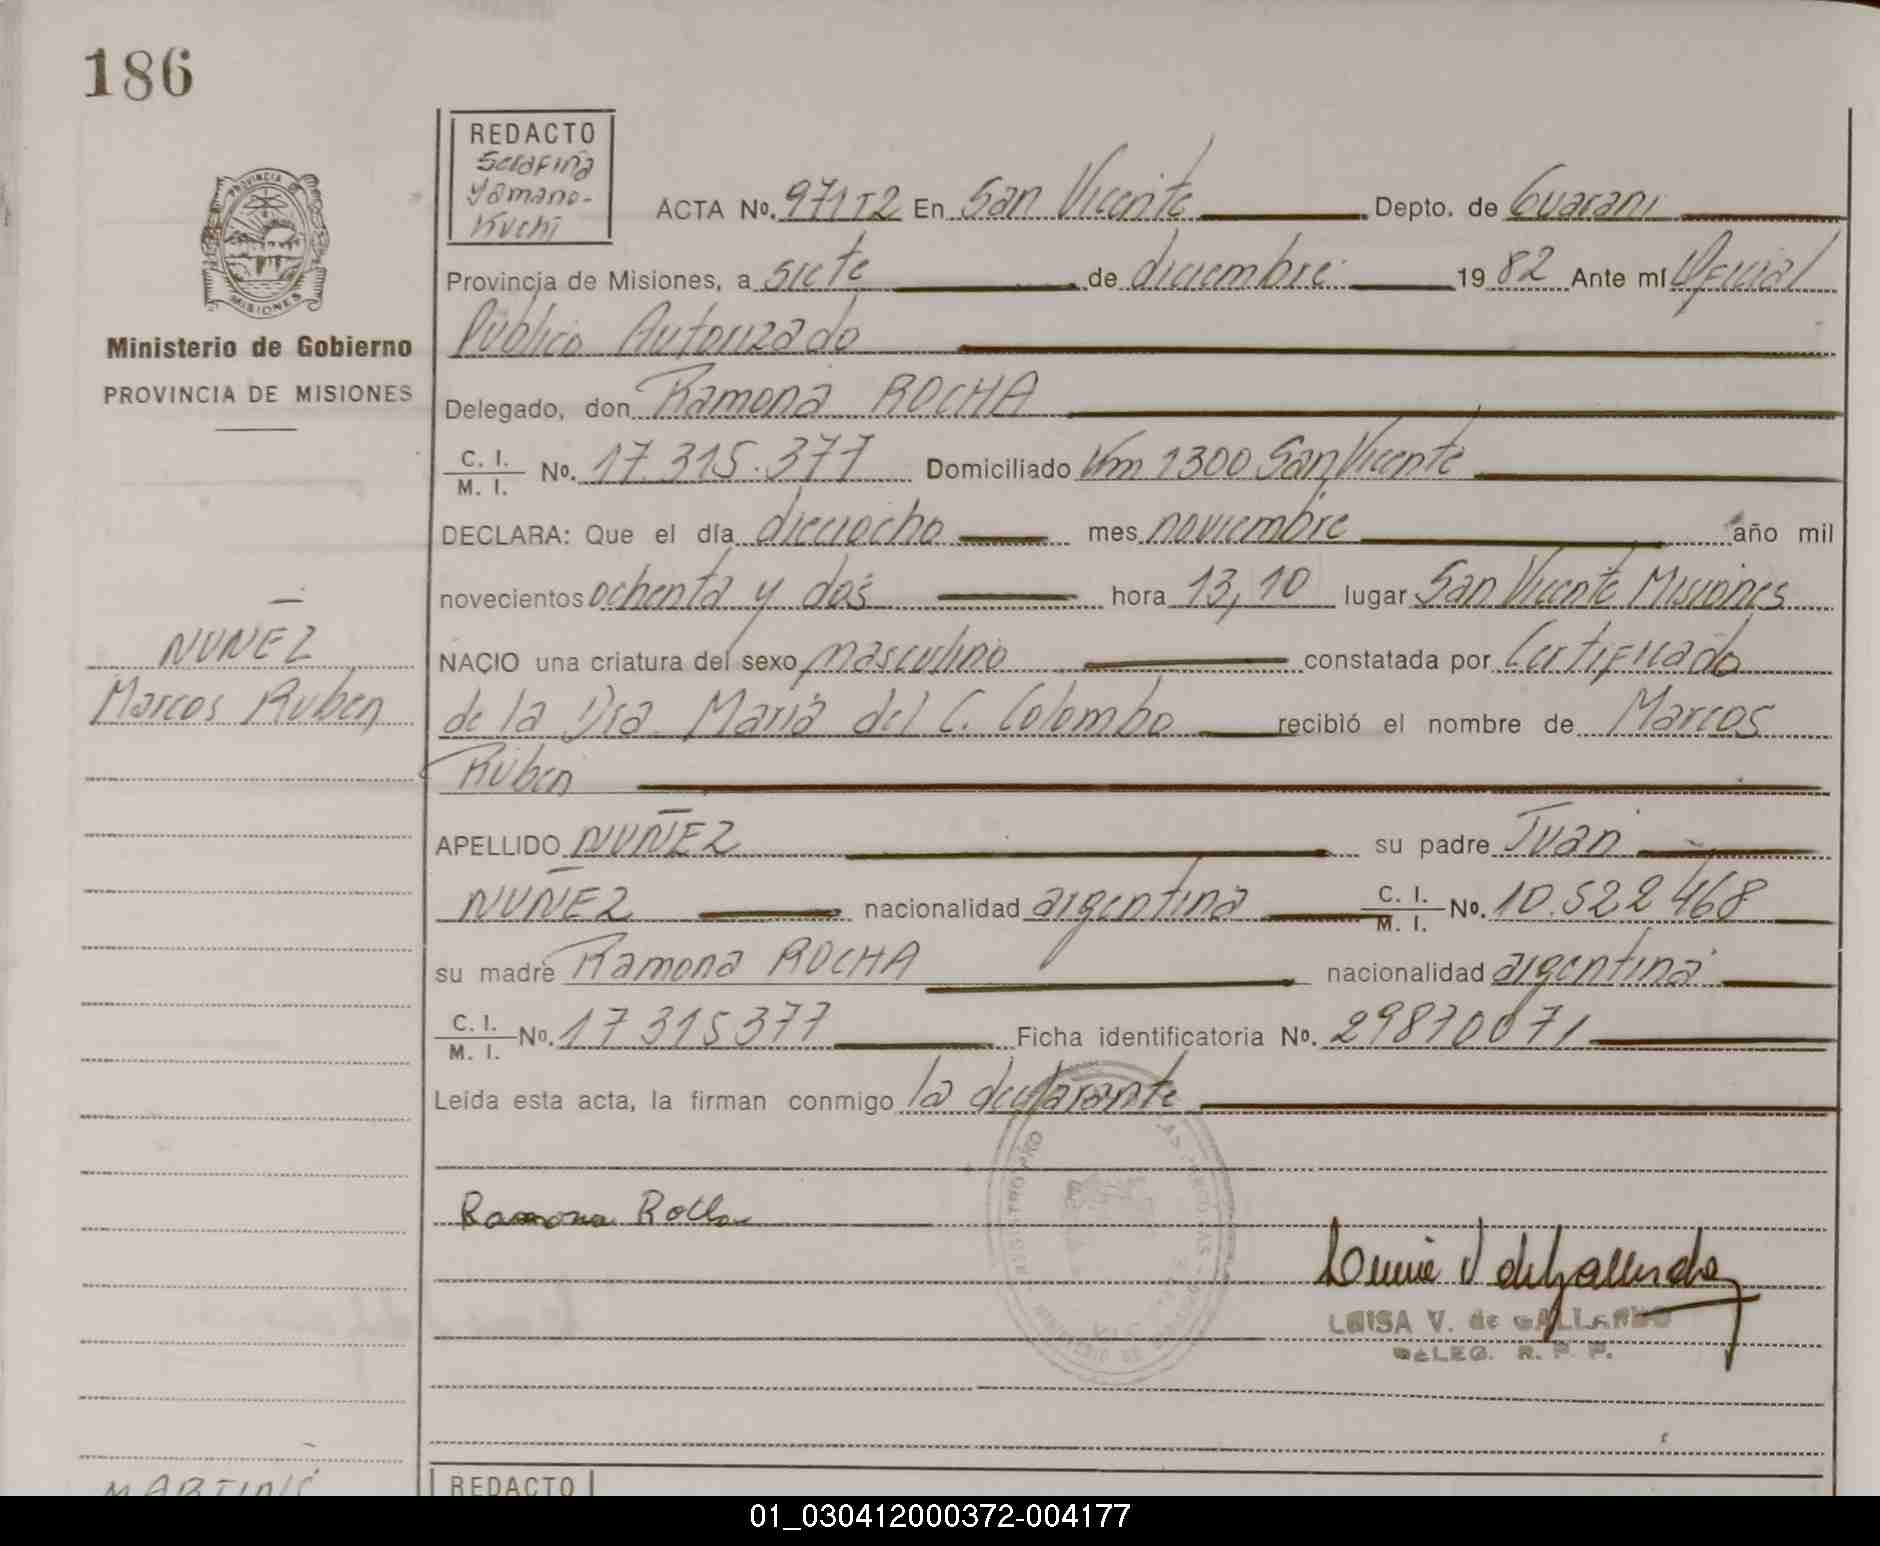 186
REDACTO
Serafina
Yamano-
Kuchi
PROVINCIA DE
MISIONES
Ministerio de Gobierno
PROVINCIA DE MISIONES
ACTA No. 971T2 En San Vicente Depto. de Guarani
Provincia de Misiones, a siete de diciembre 19 82 Ante mí Oficial
Publico Autorizado
Delegado, don Ramona ROCHA
C. I. / M. I. No. 17.315.377 Domiciliado Km 1300 San Vicente
DECLARA: Que el día dieciocho mes noviembre año mil
novecientos ochenta y dos hora 13,10 lugar San Vicente Misiones
NACIO una criatura del sexo masculino constatada por Certificado
de la Dra. Maria del C. Colombo recibió el nombre de Marcos
Ruben
NUÑEZ
Marcos Ruben
APELLIDO NUÑEZ su padre Juan
NUÑEZ nacionalidad argentina C. I. / M. I. No. 10.522 468
su madre Ramona ROCHA nacionalidad argentina
C. I. / M. I. No. 17 315 377 Ficha identificatoria No. 29870071
Leída esta acta, la firman conmigo la declarante
Ramona Rocha
LUISA V. de GALLARDO
DELEG. R. P. P.
REDACTO
01_030412000372-004177